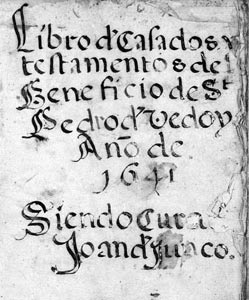 Libro d Casados y
testamentos del
Beneficio de St
Pedro d Vedoy
Año de
1641
Siendo Cura
Joan d